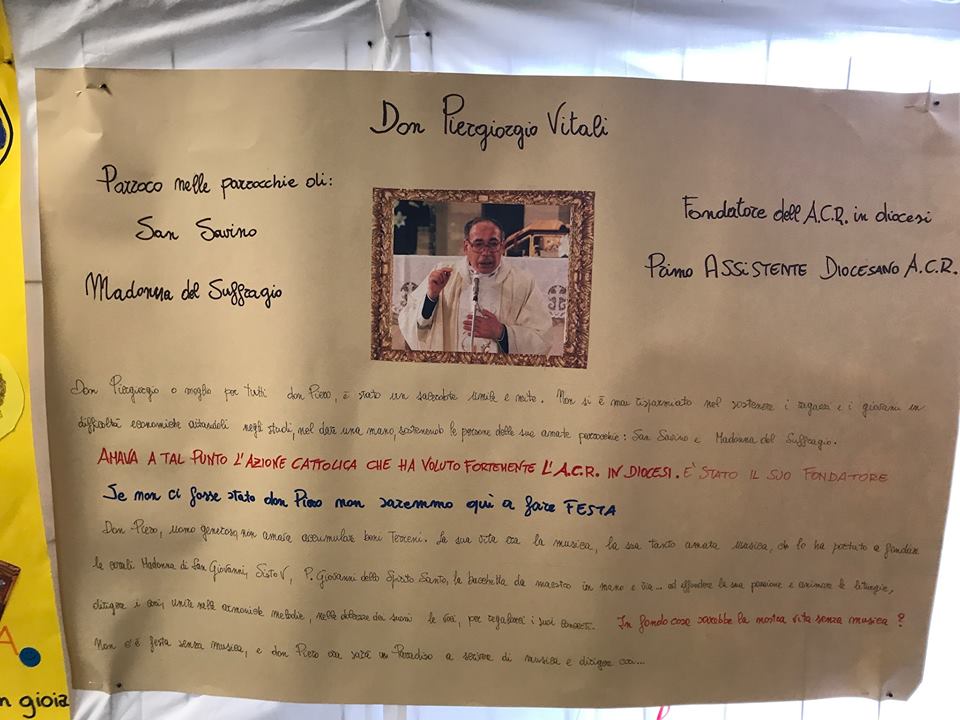 Don Piergiorgio Vitali
Parroco nelle parrocchie di:
San Savino
Madonna del Suffragio
Fondatore dell'A.C.R. in diocesi
Primo ASSISTENTE DIOCESANO A.C.R.
Don Piergiorgio o meglio per tutti don Piero, è stato un sacerdote umile e mite. Non si è mai risparmiato nel sostenere i ragazzi e i giovani in
difficoltà economiche aiutandoli negli studi, nel dare una mano, sostenendo le persone delle sue amate parrocchie: San Savino e Madonna del Suffragio.
AMAVA A TAL PUNTO L'AZIONE CATTOLICA CHE HA VOLUTO FORTEMENTE L'A.C.R. IN DIOCESI. E' STATO IL SUO FONDATORE
Se non ci fosse stato don Piero non saremmo quì a fare FESTA
Don Piero, uomo generoso, non amava accumulare beni Terreni. La sua vita era la musica, la sua tanto amata musica, che lo ha portato a fondare
le corali Madonna di San Giovanni, Sisto V, P. Giovanni dello Spirito Santo, la bacchetta da maestro in mano e via... ad effondere la sua passione e animare le liturgie,
dirigere i cori, unite nelle armoniche melodie, nella dolcezza dei suoni le voci, per regalarci i suoi concerti. In fondo cosa sarebbe la nostra vita senza musica?
Non c'è festa senza musica, e don Piero ora sarà in Paradiso a scrivere di musica e dirigere
A
n gioia